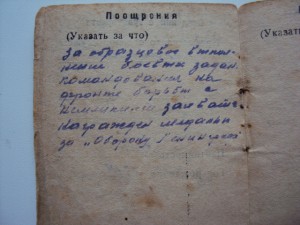 Поощрения
(Указать за что)
За образцовое выпол-
нение боевых задан.
командования на
фронте борьбы с
немецкими захват.
награжден медалью
за „Оборону
(Указать